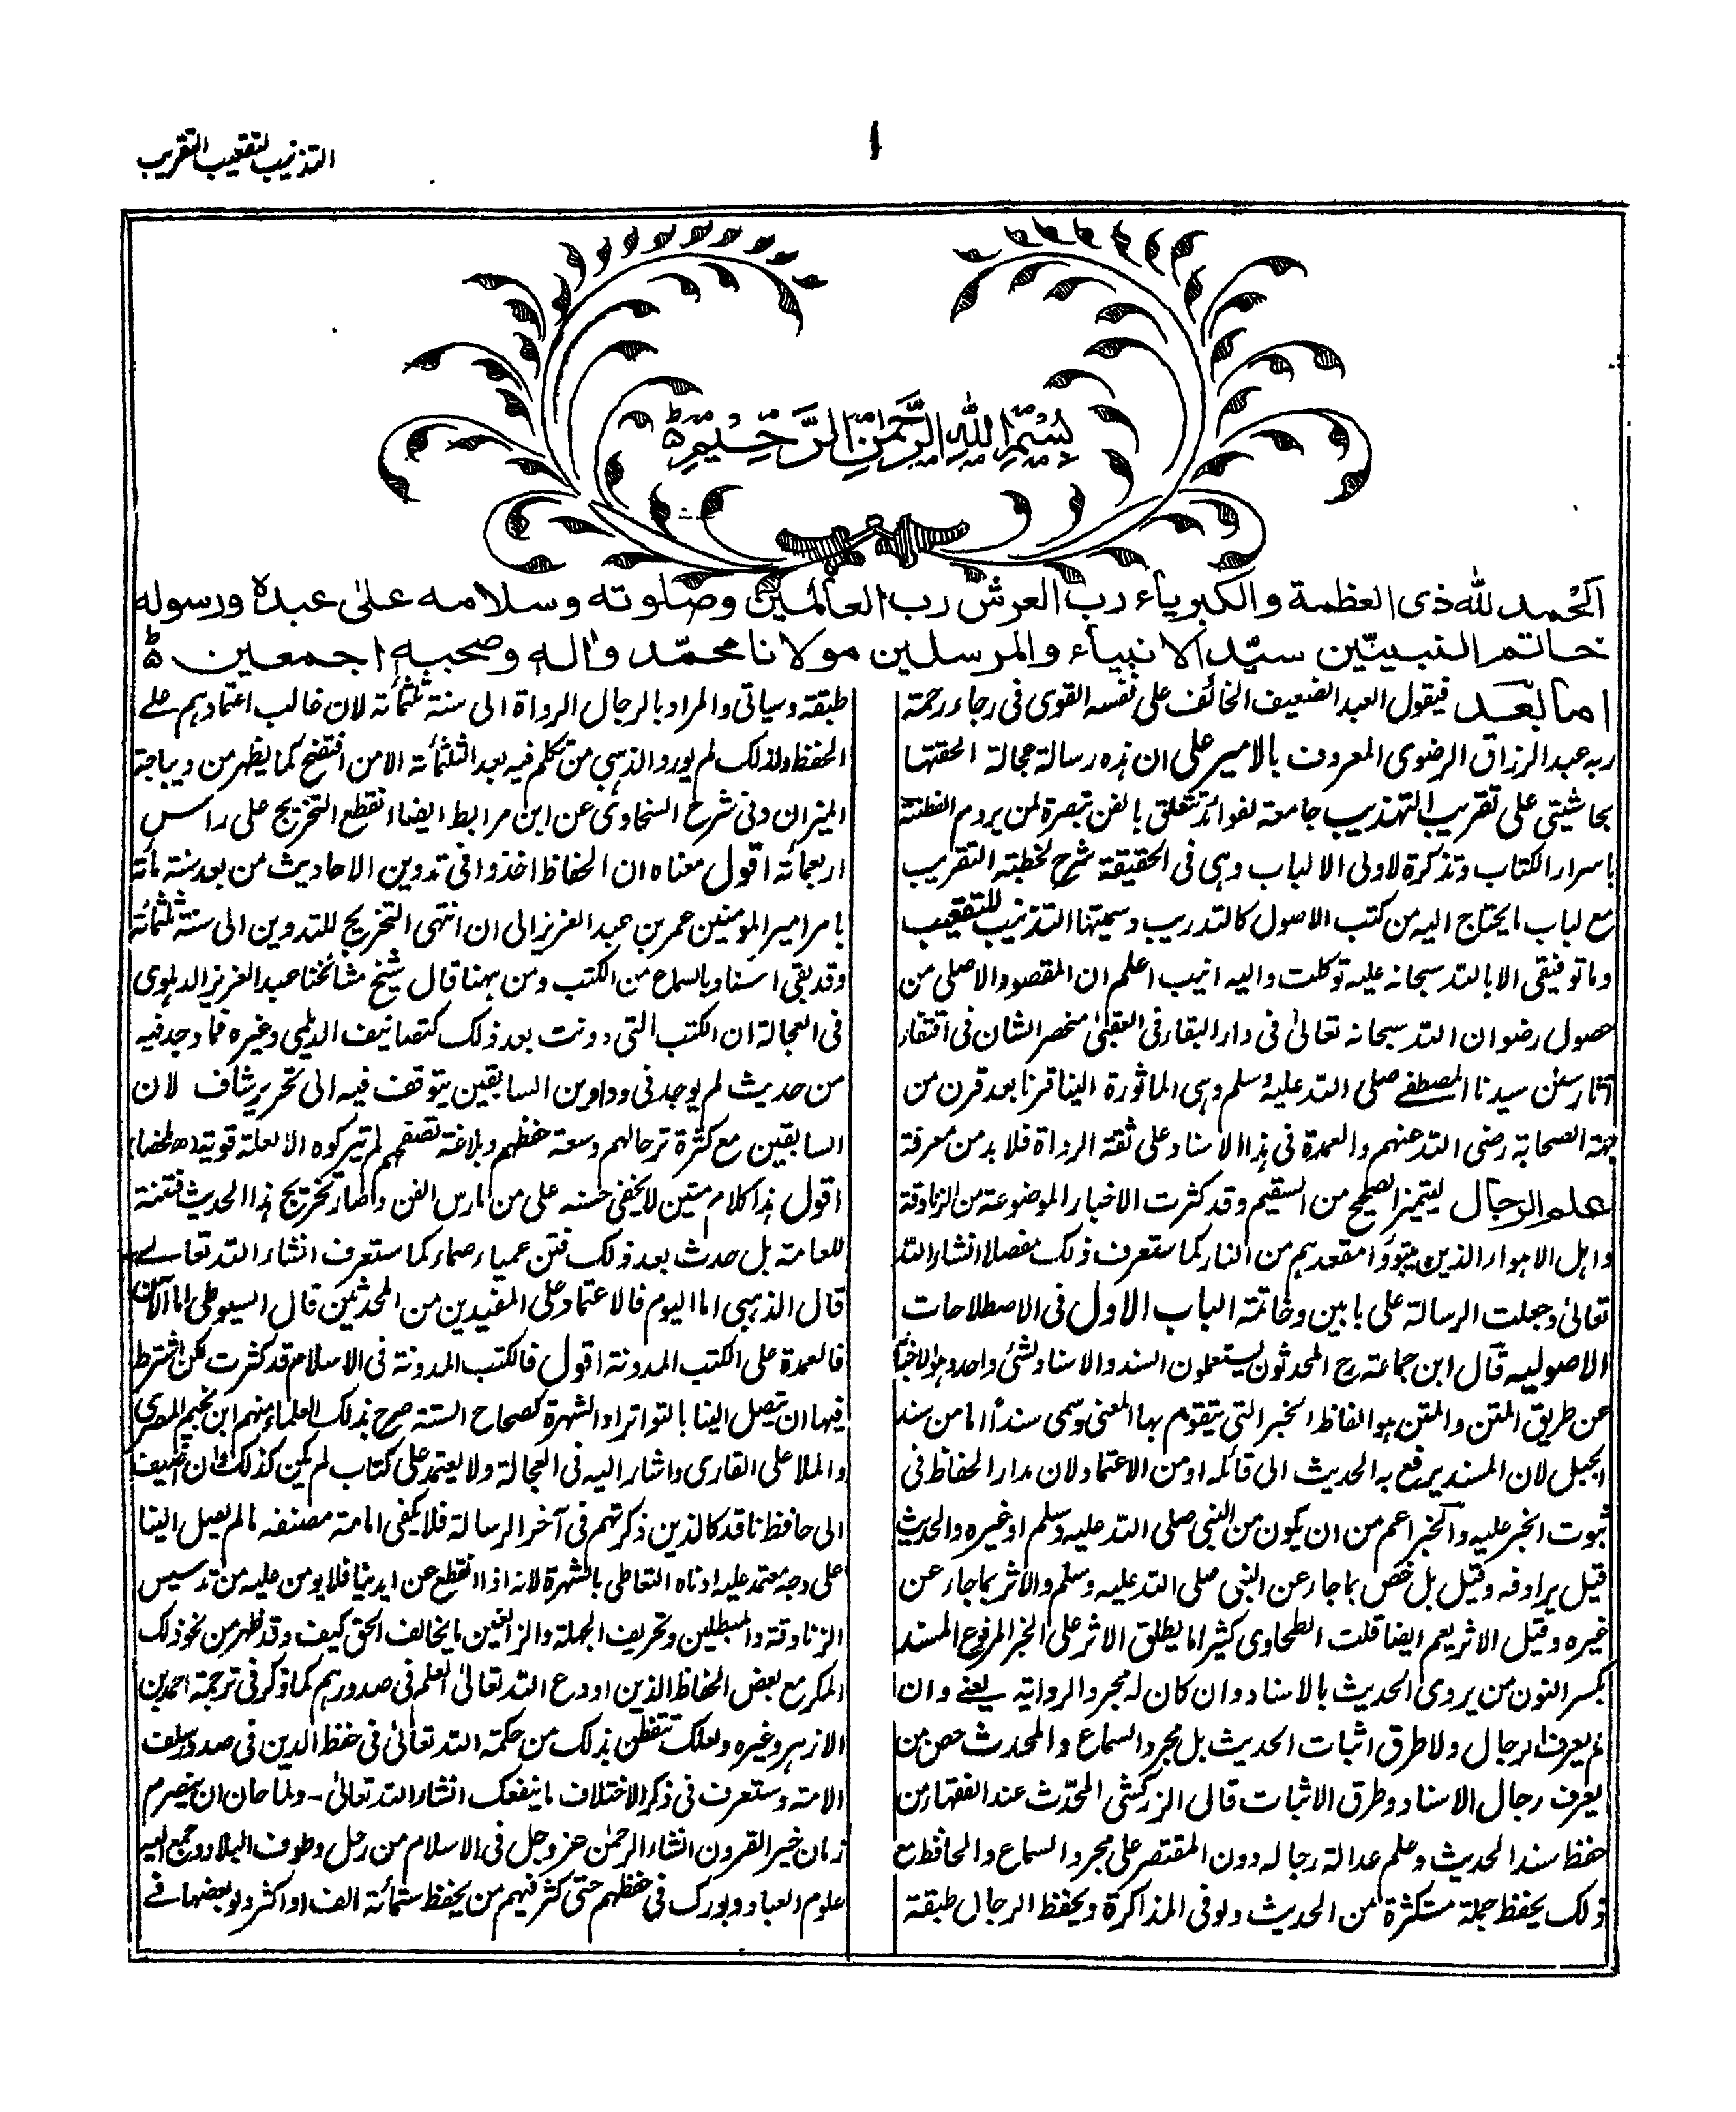 التذنيب لتقعيب التقريب
١
بِسْمِ اللّٰهِ الرَّحْمٰنِ الرَّحِيْمِ ط
اَلْحمد للّٰه ذى العظمة والكبرياء رب العرش رب العالمين وصلوته وسلامه علىٰ عبده ورسوله
خاتم النبيّين سيّد الانبياء والمرسلين مولانا محمّد واٰله وصحبه اجمعين ط
اما بعد فيقول العبد الضعيف الخائف على نفسه القوى فى رجاء رحمة
ربه عبد الرزاق الرضوى المعروف بالامير على ان هذه رسالة عجالة الحقتها
بحاشيتى على تقريب التهذيب جامعة لفوائد تتعلق بالفن تبصرة لمن يروم الفطنة
باسرار الكتاب وتذكرة لاولى الالباب وهى فى الحقيقة شرح لخطبة التقريب
مع لباب ما يحتاج اليه من كتب الاصول كالتدريب وسميتها التذنيب للتقعيب
وما توفيقى الا بالله سبحانه عليه توكلت واليه انيب اعلم ان المقصود الاصلى من
حصول رضوان الله سبحانه تعالىٰ فى دار البقاء فى العقبىٰ منحصر الشان فى اقتفاء
آثار سنن سيدنا المصطفے صلى الله عليه وسلم وهى الماثورة الينا قرنا بعد قرن من
جهة الصحابة رضى الله عنهم والعمدة فى هذا الاسناد على ثقة الرواة فلا بد من معرفة
علم الرجال ليتميز الصحيح من السقيم وقد كثرت الاخبار الموضوعة من الزنادقة
واهل الاهواء الذين يتبوؤا مقعدهم من النار كما ستعرف ذلك مفصلا انشاء الله
تعالىٰ وجعلت الرسالة على بابين وخاتمة الباب الاول فى الاصطلاحات
الاصوليه قال ابن جماعة رح المحدثون يستعملون السند والاسناد لشئ واحد وهو الاخبار
عن طريق المتن والمتن هو الفاظ الخبر التى يتقوم بها المعنى وسمى سنداً اما من سند
الجبل لان المسند يرفع به الحديث الى قائله او من الاعتماد لان مدار الحفاظ فى
ثبوت الخبر عليه والخبر اعم من ان يكون من النبى صلى الله عليه وسلم او غيره والحديث
قيل يرادفه وقيل بل خص بما جاء عن النبى صلى الله عليه وسلم والاثر بما جاء عن
غيره وقيل الاثر يعم ايضا قلت الطحاوى كثيرا ما يطلق الاثر على الخبر المرفوع المسند
بكسر النون من يروى الحديث بالاسناد وان كان له مجرد الرواية يعنے وان
لم يعرف الرجال ولا طرق اثبات الحديث بل مجرد السماع والمحدث خص من
يعرف رجال الاسناد وطرق الاثبات قال الزركشى المحدّث عند الفقهاء من
حفظ سند الحديث وعلم عدالة رجاله دون المقتصر على مجرد السماع والحافظ مع
ذلك يحفظ جملة مستكثرة من الحديث ولو فى المذاكرة ويحفظ الرجال طبقة
طبقة وسياتى والمراد بالرجال الرواة الى سنة ثلثمائة لان غالب اعتمادهم علے
الحفظ ولذلك لم يورد الذهبى من تكلم فيه بعد الثلثمائة الا من افتضح كما يظهر من ديباجة
الميزان وفى شرح السخاوى عن ابن مرابط ايضا انقطع التخريج على راس
اربعمائة اقول معناه ان الحفاظ اخذوا فى تدوين الاحاديث من بعد سنة مائة
بامر امير المومنين عمر بن عبد العزيز الى ان انتهى التخريج للتدوين الى سنة ثلثمائة
وقد بقى اسناد بالسماع من الكتب ومن ههنا قال شيخ مشائخنا عبد العزيز الدهلوى
فى العجالة ان الكتب التى دونت بعد ذلك كتصانيف الديلمى وغيره فما وجد فيه
من حديث لم يوجد فى دواوين السابقين يتوقف فيه الى تحرير شاف لان
السابقين مع كثرة ترحالهم وسعة حفظهم وبلاغة تصفحهم لم تيركوه الا لعلة قوية (ھ ملخصا)
اقول هذا كلام متين لا يخفى حسنه على من مارس الفن وصار تخريج هذا الحديث فتنة
للعامة بل حدث بعد ذلك فتن عمياء صماء كما ستعرف انشاء الله تعالے
قال الذهبى اما اليوم فالاعتماد على المفيدين من المحدثين قال السيوطى اما الآن
فالعمدة على الكتب المدونة اقول فالكتب المدونة فى الاسلام قد كثرت لكن اشترط
فيها ان يتصل الينا بالتواتر او الشهرة كصحاح الستة صرح بذلك العلماء منهم ابن نجيم المصرى
والملا على القارى واشار اليه فى العجالة ولا يعتمد على كتاب لم يكن كذلك وان اضيف
الى حافظ ناقد كالذين ذكرتهم فى آخر الرسالة فلا يكفى امامة مصنفه ما لم يصل الينا
على وجه معتمد عليه ادناه التعاطى بالشهرة لانه اذا انقطع عن ايدينا فلا يومن عليه من تدسيس
الزنادقة والمبطلين وتحريف الجهلة والزائغين ما يخالف الحق كيف وقد ظهر من نحو ذلك
المكر مع بعض الحفاظ الذين اودع الله تعالىٰ العلم فى صدورهم كما ذكر فى ترجمة احمد بن
الازهر وغيره ولعلك تتفطن بذلك من حكمة الله تعالىٰ فى حفظ الدين فى صدور سلف
الامة وستعرف فى ذكر الاختلاف ما ينفعك انشاء الله تعالىٰ - ولما حان ان ينصرم
زمان خير القرون انشاء الرحمٰن عز وجل فى الاسلام من رحل وطوف البلاد وجمع اليه
علوم العباد وبورك فى حفظهم حتى كثر فيهم من يحفظ ستمائة الف او اكثر ولو بعضها فے